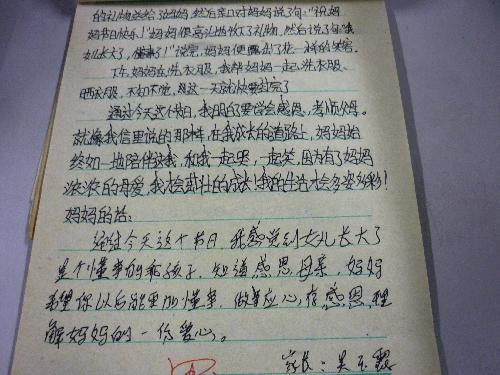 的礼物送给了妈妈,然后亲口对妈妈说了句:"祝妈
妈节日快乐!"妈妈便高兴地收下了礼物,然后说了句:"我
女儿长大了,懂事了!"说完,妈妈便露出了花一样的笑容。
下午,妈妈在洗衣服,我帮妈妈一起洗衣服、
晒衣服,不知不觉,这一天就快要过完了
通过今天这个节日,我明白了要学会感恩,孝顺父母。
就像我信里说的那样,在我成长的道路上,妈妈始
终如一地陪伴这我,和我一起哭,一起笑,因为有了妈妈
浓浓的母爱,我才会茁壮的成长!我的生活才会多姿多彩!
妈妈的话:
经过今天这个节日,我感觉到女儿长大了
是个懂事的乖孩子,知道感恩母亲,妈妈
希望你以后能更加懂事,做事应心存感恩,理
解妈妈的一份爱心。
家长:吴玉霞